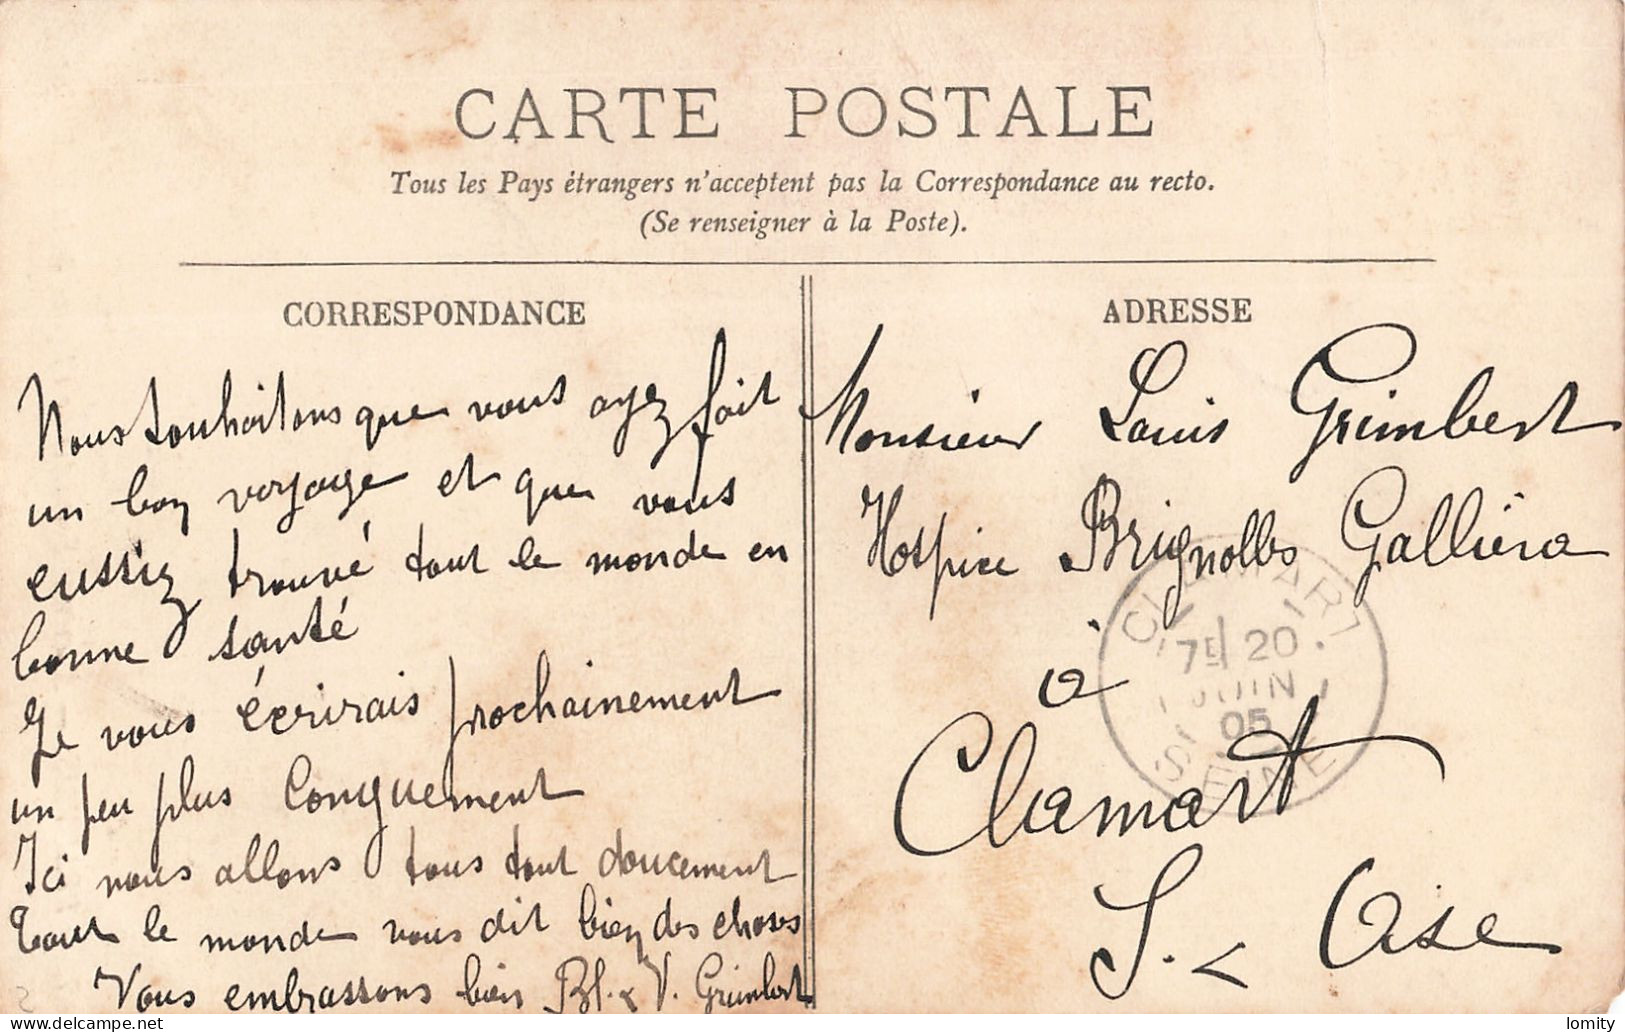 CARTE POSTALE
Tous les Pays étrangers n'acceptent pas la Correspondance au recto.
(Se renseigner à la Poste).
CORRESPONDANCE
Nous souhaitons que vous ayez fait
un bon voyage et que vous
eussiez trouvé tout le monde en
bonne santé
Je vous écrirais prochainement
un peu plus longuement
Ici nous allons tous tout doucement
Tout le monde vous dit bien des choses
Vous embrassons bien Bl. & V. Grimbert
ADRESSE
Monsieur Louis Grimbert
Hospice Brignolles Galliéra
à
Clamart
S. & Oise
CLAMART
7E 20
JUIN
05
SEINE
delcampe.net
lomity